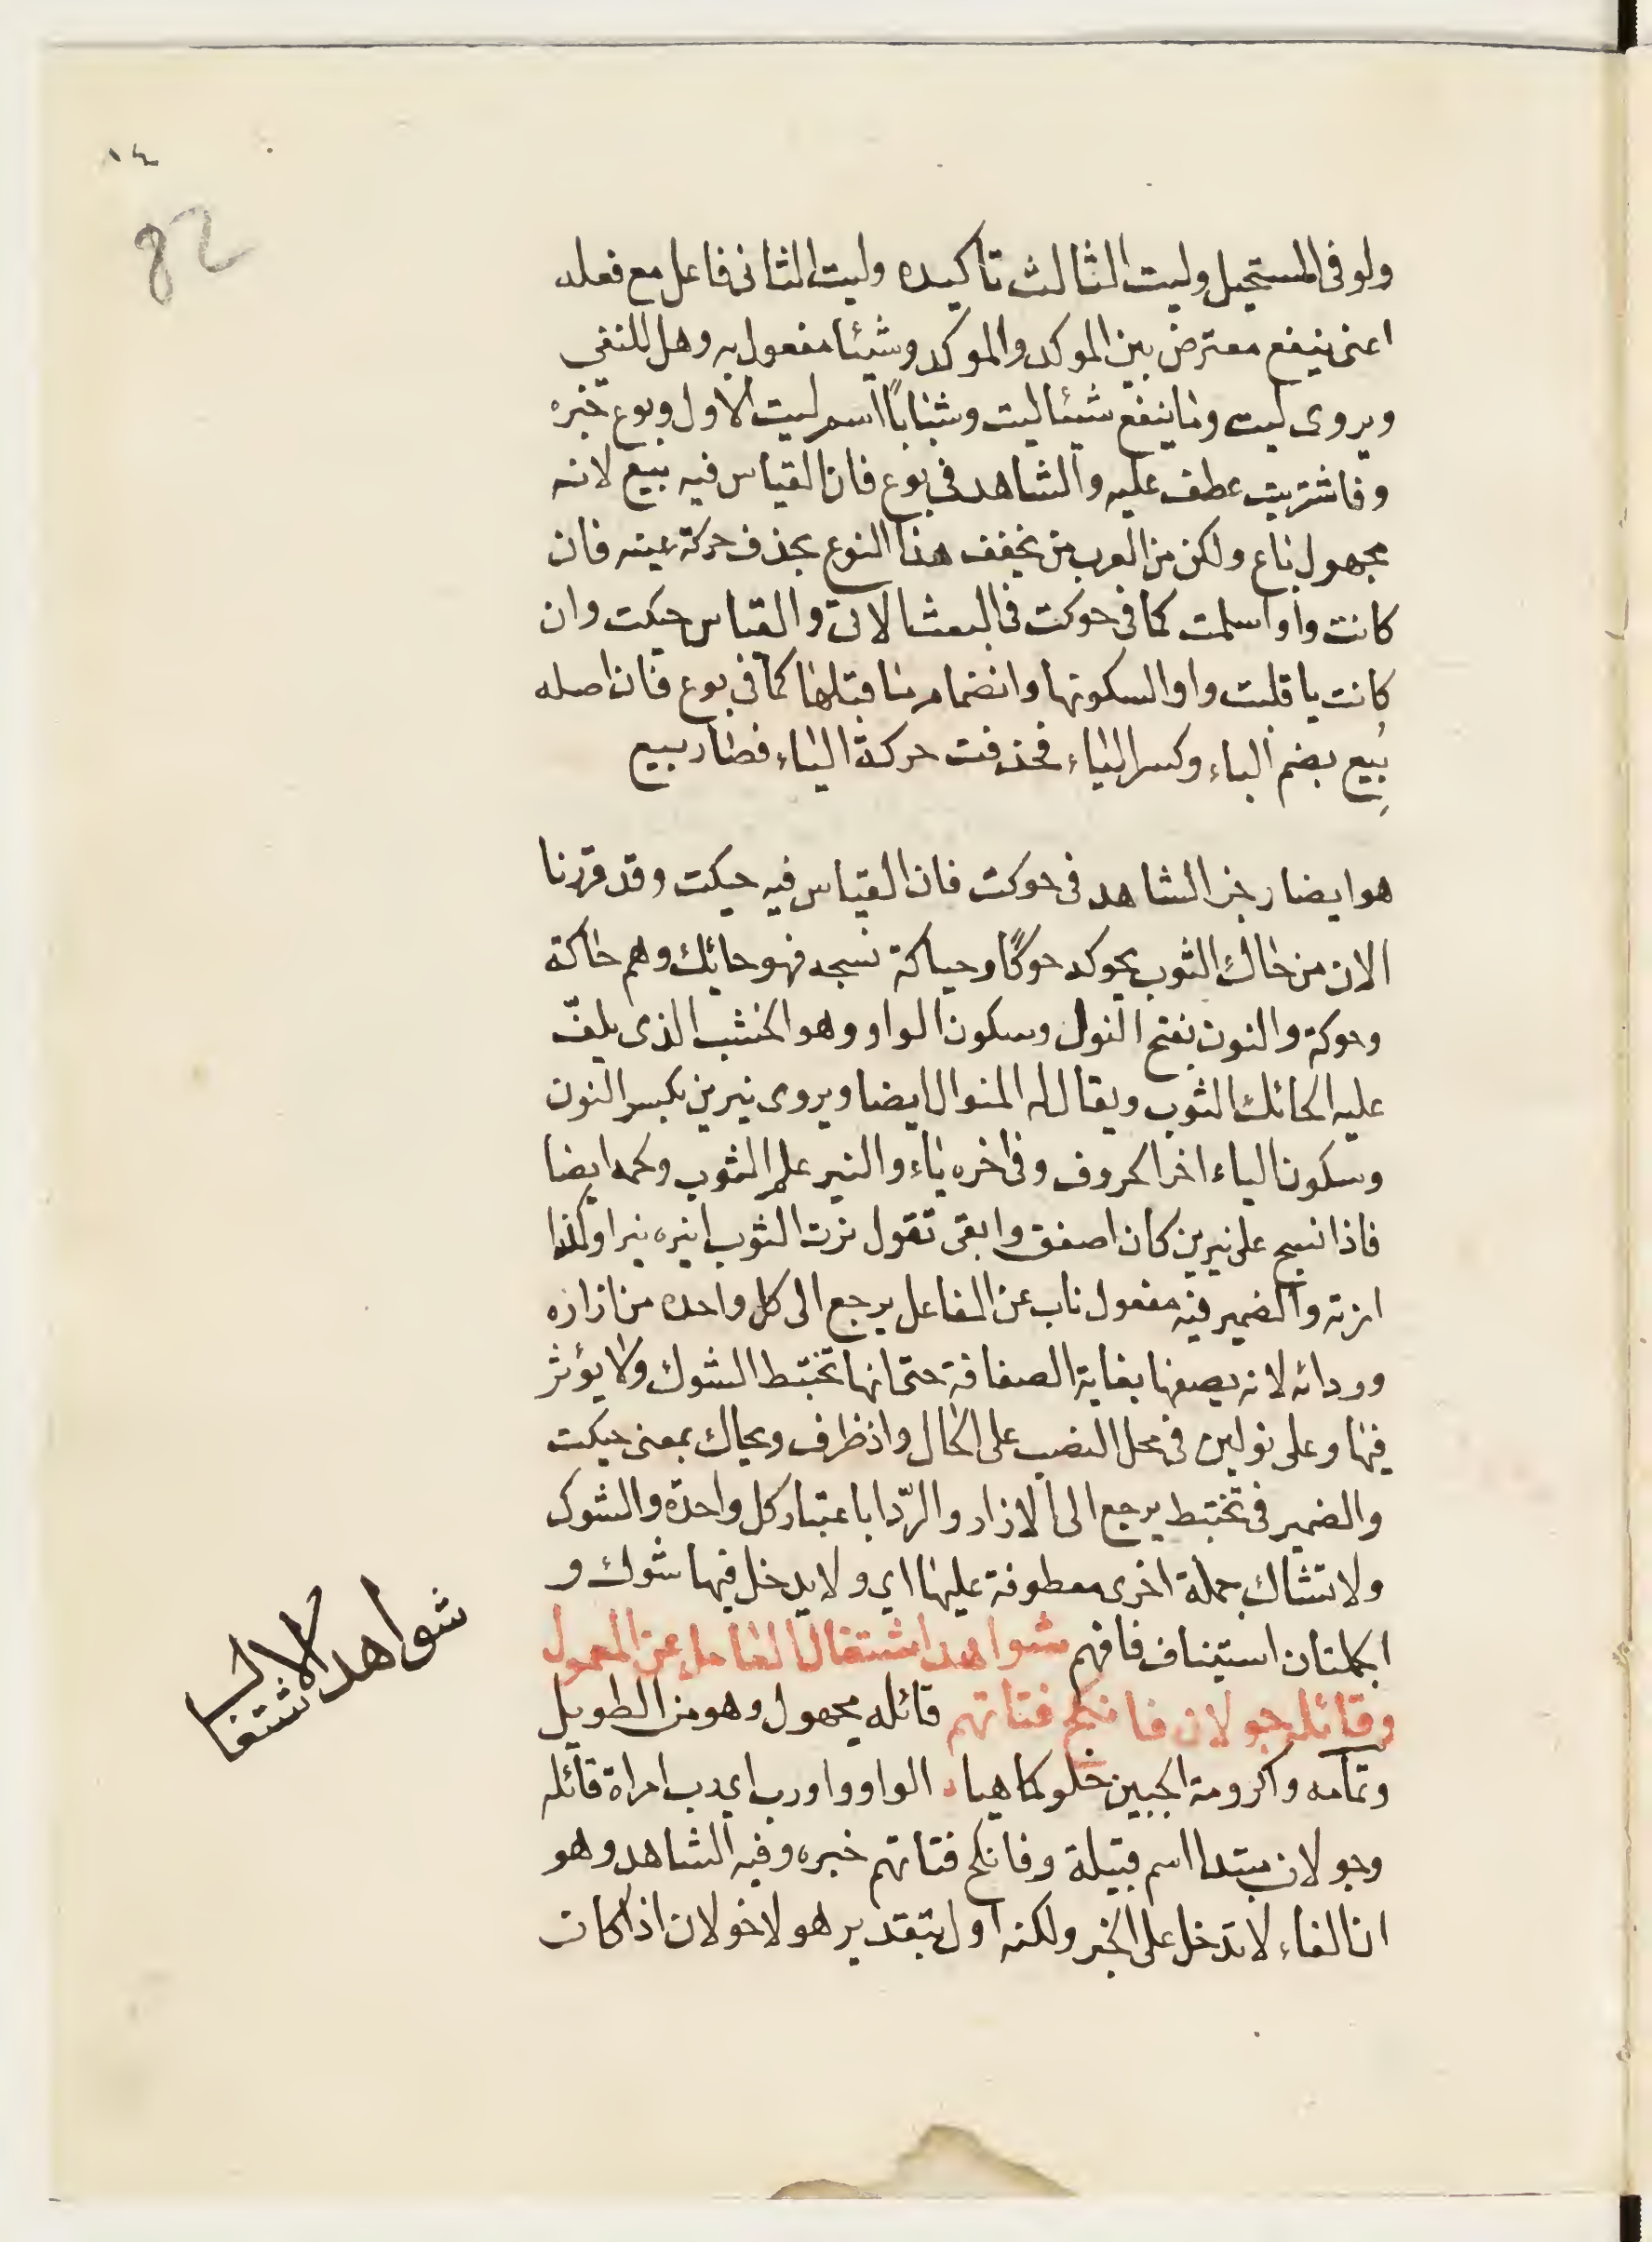 ولو فى المستحيل وليت الثالث تاكيده وليت الثانى فاعل مع فعله
اعنى ينفع معترض بين الموكد والموكد وشيئا مفعول به وهل للنفى
ويروى ليت وما ينفع شيئا ليت وشبابًا اسم ليت الاول وبوع خبره
وفاشتريت عطف عليه والشاهد فى بوع فان القياس فيه بيع لانه
مجهول باع ولكن من العرب من يخفف هذا النوع بحذف حركة عينه فان
كانت واوا سلمت كما فى حوكت فى البعث الاتى والقياس حيكت وان
كانت يا قلبت واوا لسكونها وانضمام ما قبلها كما فى بوع فان اصله
بُيِع بضم الباء وكسر الياء فحذفت حركة الياء فصار بيع
هو ايضا رجز الشاهد فى حوكت فان القياس فيه حيكت وقد قررنا
الان من حاك الثوب يحوكه حوكًا وحياكة نسجه فهو حائك وهم حاكة
وحوكة والنون بفتح النول وسكون الواو وهو الخشب الذى يلفّ
عليه الحائك الثوب ويقال له المنوال ايضا ويروى نيرين بكسر النون
وسكون الياء اخر الحروف وفى اخره ياء والنير علم الثوب ولحمه ايضا
فاذا نسج على نيرين كان اصفق وابقى تقول نرت الثوب انيره نيرا وكذا
انرته والضمير فيه مفعول ناب عن الفاعل يرجع الى كل واحده من ازاره
وردائه لانه يصفها بغاية الصفاقة حتى انها تختبط الشوك ولا يؤثر
فيها وعلى نولين فى محل النصب على الحال واذ ظرف ويحاك بمعنى حيكت
والضمير فى تختبط يرجع الى الازار والرّدا باعتبار كل واحدة والشوك
ولا تشاك جملة اخرى معطوفة عليها اي ولا يدخل فيها شوك و
الجملتان استيناف فافهم شواهد اشتغال العامل عن المعمول
وقائلة جولان فانكح فتاتهم قائله مجهول وهو من الطويل
وتمامه واكرومة الحيين خلو كما هيا الواو واو رب اي رب امراة قائله
وجولان مبتدا اسم قبيلة وفانكح فتاتهم خبره وفيه الشاهد وهو
ان الفاء لا تدخل على الخبر ولكنه اول بتقدير هولا خولان اذا كان
شواهد الاشتغال
١٤
82